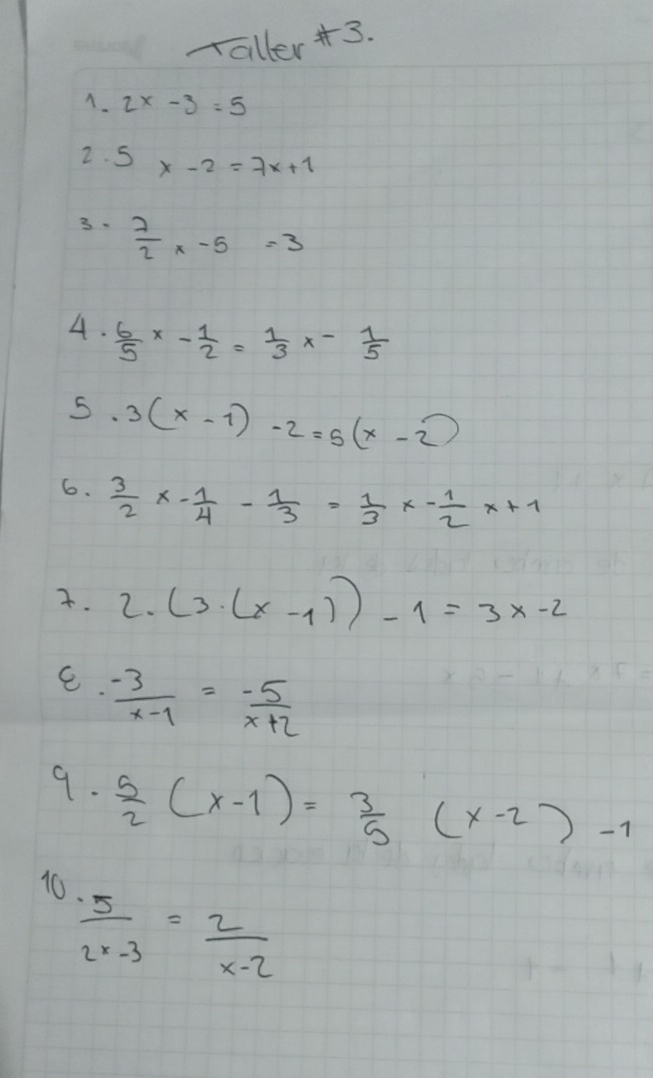 Taller #3.
1. 2x - 3 = 5
2. 5x - 2 = 7x + 1
3. 7/2 x - 5 = 3
4. 6/5 x - 1/2 = 1/3 x - 1/5
5. 3(x - 1) - 2 = 5(x - 2)
6. 3/2 x - 1/4 - 1/3 = 1/3 x - 1/2 x + 1
7. 2.(3.(x - 1)) - 1 = 3x - 2
8. -3/(x-1) = -5/(x+2)
9. 5/2 (x - 1) = 3/5 (x - 2) - 1
10. 5/(2x-3) = 2/(x-2)